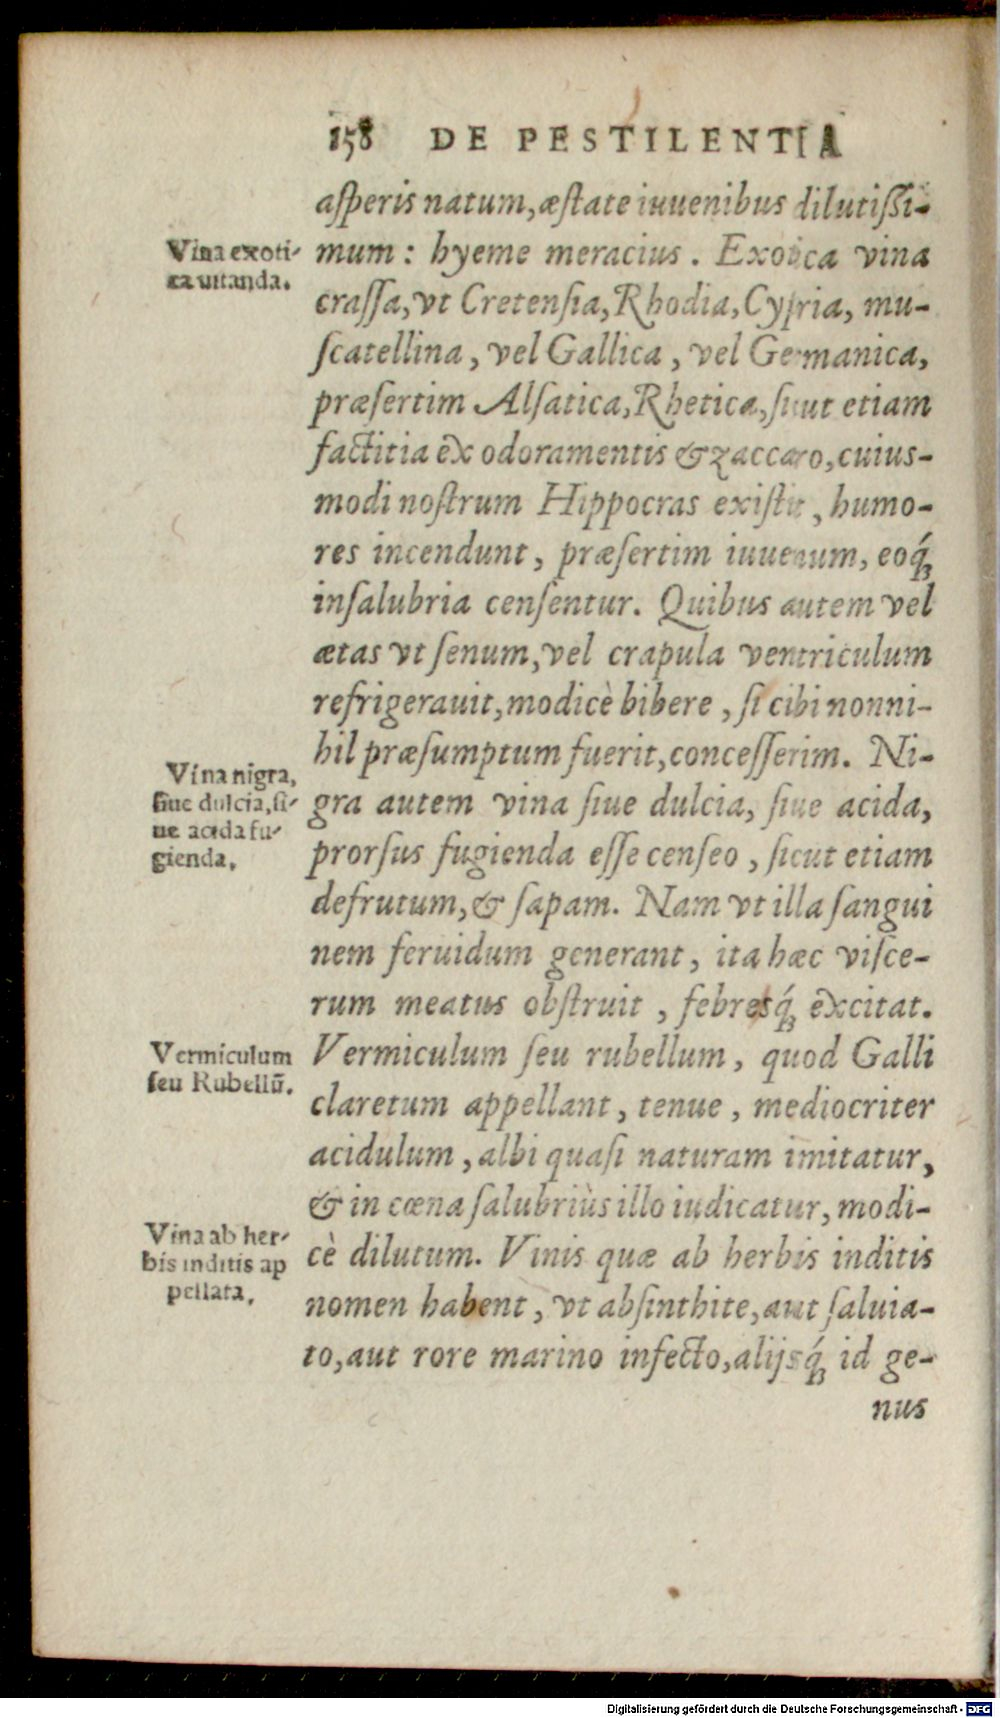 158 DE PESTILENTIA
aſperis natum, æſtate iuuenibus dilutiſſi-
mum: hyeme meracius. Exotica vina
Vina exoti-
ca uitanda.
craſſa, vt Cretenſia, Rhodia, Cypria, mu-
ſcatellina, vel Gallica, vel Germanica,
præſertim Alſatica, Rhetica, ſicut etiam
factitia ex odoramentis & zaccaro, cuius-
modi noſtrum Hippocras exiſtit, humo-
res incendunt, præſertim iuuenum, eoq́;
inſalubria cenſentur. Quibus autem vel
ætas vt ſenum, vel crapula ventriculum
refrigerauit, modicè bibere, ſi cibi nonni-
hil præſumptum fuerit, conceſſerim. Ni-
Vina nigra,
ſiue dulcia, ſi-
ue acida fu-
gienda.
gra autem vina ſiue dulcia, ſiue acida,
prorſus fugienda eſſe cenſeo, ſicut etiam
defrutum, & ſapam. Nam vt illa ſangui
nem feruidum generant, ita hæc viſce-
rum meatus obſtruit, febresq́; excitat.
Vermiculum
ſeu Rubellũ.
Vermiculum ſeu rubellum, quod Galli
claretum appellant, tenue, mediocriter
acidulum, albi quaſi naturam imitatur,
& in cœna ſalubriùs illo iudicatur, modi-
Vina ab her-
bis inditis ap
pellata.
cè dilutum. Vinis quæ ab herbis inditis
nomen habent, vt abſinthite, aut ſaluia-
to, aut rore marino infecto, alijsq́; id ge-
nus
Digitalisierung gefördert durch die Deutsche Forschungsgemeinschaft - DFG